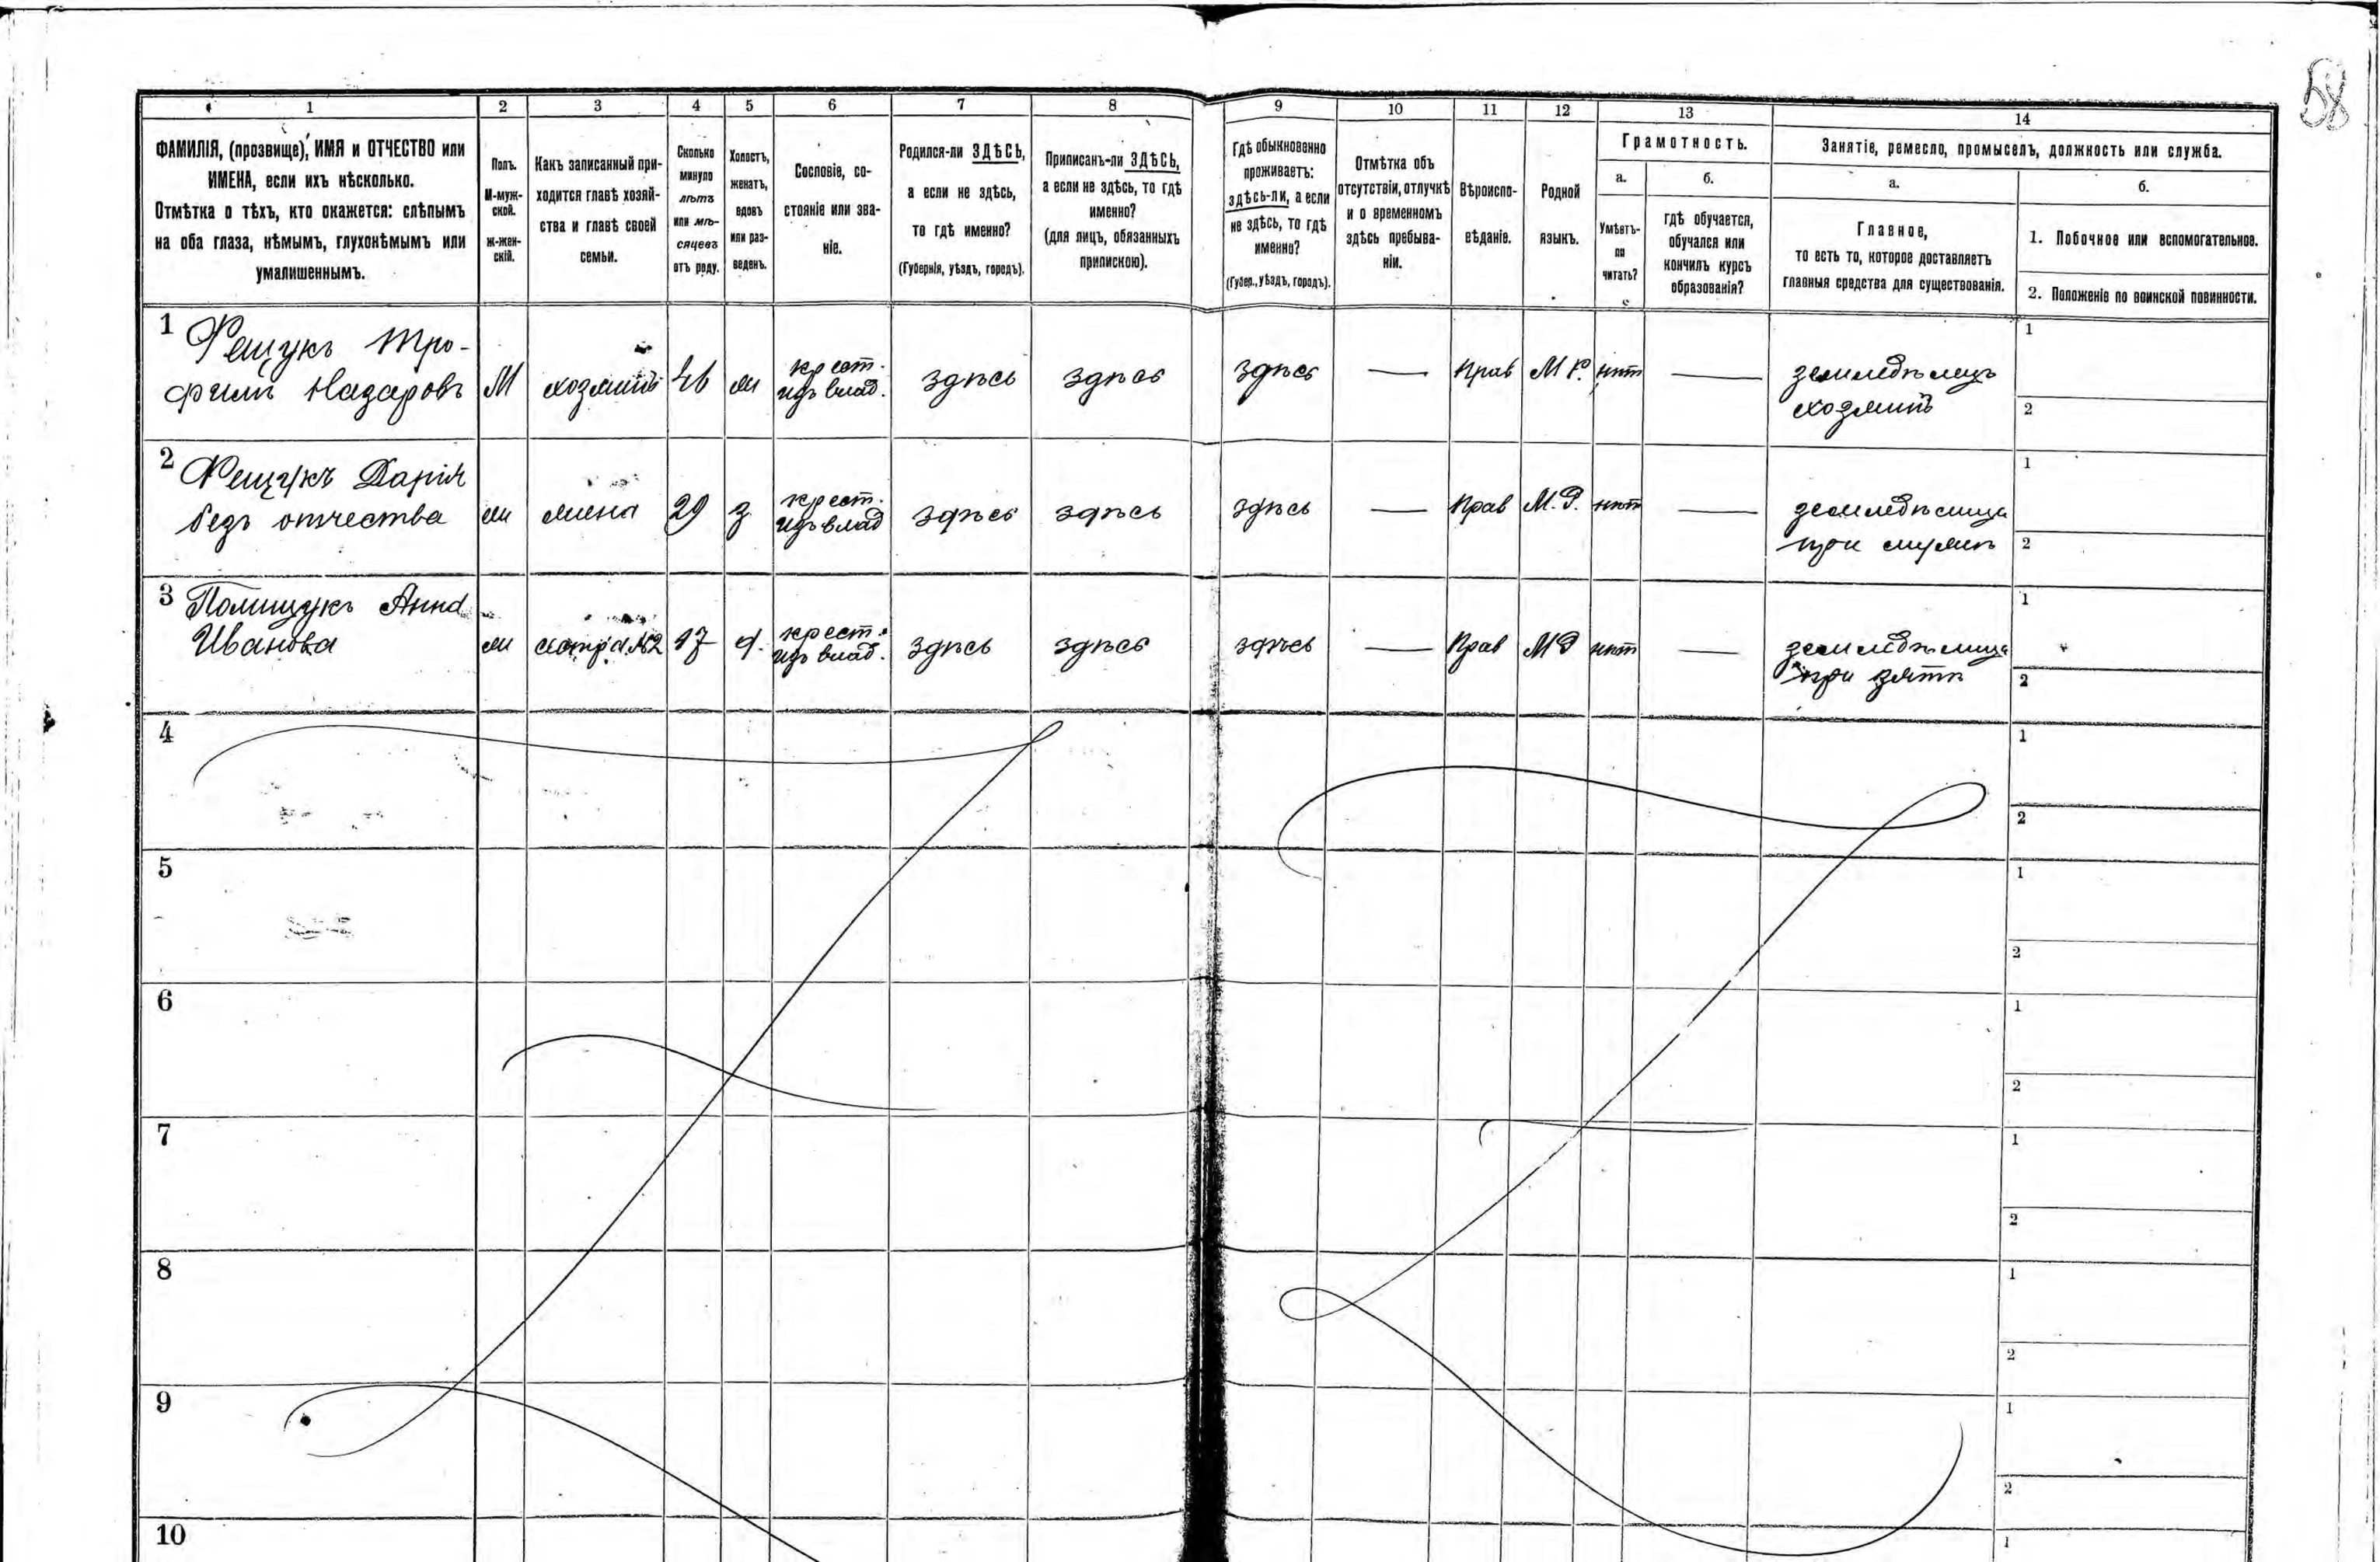 58
1
2
3
4
5
6
7
8
9
10
11
12
13
14
ФАМИЛІЯ, (прозвище), ИМЯ и ОТЧЕСТВО или
ИМЕНА, если ихъ нѣсколько.
Отмѣтка о тѣхъ, кто окажется: слѣпымъ
на оба глаза, нѣмымъ, глухонѣмымъ или
умалишеннымъ.
Полъ.
М-муж-
ской.
Ж-жен-
скій.
Какъ записанный при-
ходится главѣ хозяй-
ства и главѣ своей
семьи.
Сколько
минуло
лѣтъ
или мѣ-
сяцевъ
отъ роду.
Холостъ,
женатъ,
вдовъ
или раз-
веденъ.
Сословіе, со-
стояніе или зва-
ніе.
Родился-ли ЗДѢСЬ,
а если не здѣсь,
то гдѣ именно?
(Губернія, уѣздъ, городъ).
Приписанъ-ли ЗДѢСЬ,
а если не здѣсь, то гдѣ
именно?
(для лицъ, обязанныхъ
припискою).
Гдѣ обыкновенно
проживаетъ:
здѣсь-ли, а если
не здѣсь, то гдѣ
именно?
(Губер., уѣздъ, городъ).
Отмѣтка объ
отсутствіи, отлучкѣ
и о временномъ
здѣсь пребыва-
ніи.
Вѣроиспо-
вѣданіе.
Родной
языкъ.
Грамотность.
а.
Умѣетъ-
ли
читать?
б.
гдѣ обучается,
обучался или
кончилъ курсъ
образованія?
Занятіе, ремесло, промыселъ, должность или служба.
а.
Главное,
то есть то, которое доставляетъ
главныя средства для существованія.
б.
1. Побочное или вспомогательное.
2. Положеніе по воинской повинности.
1
Фещукъ Тро-
филъ Назаровъ
М
хозяинъ
ж
крест.
изъ влад.
здѣсь
здѣсь
здѣсь
—
Прав
М Р.
нѣт
—
земледѣлецъ
хозяинъ
1
2
2
Фещукъ Дарія
безъ отчества
ж
жена
29
з
крест.
изъ влад
здѣсь
здѣсь
здѣсь
—
Прав
М. Р.
нѣт
—
земледѣлица
при мужѣ
1
2
3
Полищукъ Анна
Иванова
ж
сестра №2
17
д.
крест.
изъ влад.
здѣсь
здѣсь
здѣсь
—
Прав
М Р
нѣт
—
земледѣлица
при зятѣ
1
2
4
1
2
5
1
2
6
1
2
7
1
2
8
1
2
9
1
2
10
1